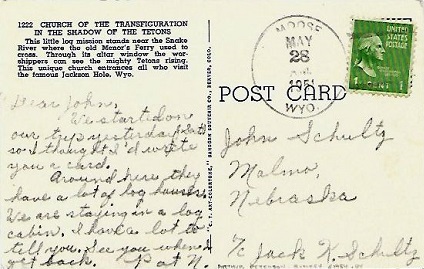 1222 CHURCH OF THE TRANSFIGURATION
IN THE SHADOW OF THE TETONS
This little log mission stands near the Snake
River where the old Menor's Ferry used to
cross. Through its altar window the wor-
shippers can see the mighty Tetons rising.
This unique church entrances all who visit
the famous Jackson Hole, Wyo.
MOOSE
MAY
28
1951
WYO.
1 CENT 1
POST CARD
Dear John,
We started on
our trip yesterday
so thought I'd write
you a card.
Around here they
have a lot of log houses.
We are staying in a log
cabin. I have a lot to
tell you. See you when I
get back. Pat N.
"C. T. ART-COLORTONE," SANBORN SOUVENIR CO., DENVER, COLO.
John Schultz
Malmo,
Nebraska
℅ Jack K. Schultz